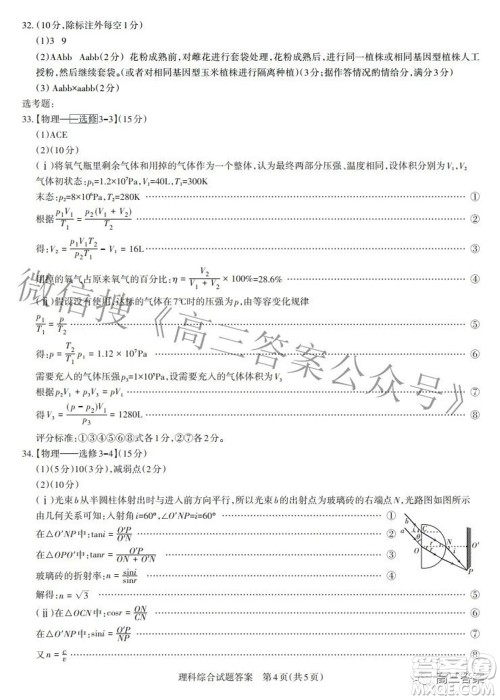 32.(10分,除标注外每空1分)
(1)3 9
(2)AAbb Aabb(2分) 花粉成熟前,对雌花进行套袋处理,花粉成熟后,采集同一植株或相同基因型植株人工
授粉,然后继续套袋。(或者对相同基因型玉米植株进行隔离种植)(3分;据作答情况给分,满分3分)
(3) Aabb×aabb(2分)
选考题:
33.【物理——选修3-3】(15分)
(1)ACE
(2)(10分)
(ⅰ)将氧气瓶里剩余气体和用掉的气体作为一个整体,认为最终两部分压强、温度均相同,体积分别为V₁,V₂
气体初状态:p₁=1.2×10⁷Pa,V₁=40L,T₁=300K
末态:p₂=8×10⁶Pa,T₂=280K ①
根据p₁V₁/T₁=p₂(V₁+V₂)/T₂ ②
得:V₂=p₁V₁T₂/p₂T₁-V₁=16L ③
用掉的氧气占原来氧气的百分比:η=V₂/(V₁+V₂)×100%=28.6% ④
(ⅱ)假设没有使用,达标的气体在7℃时的压强为p,由等容变化规律
p₁/T₁=p/T₂ ⑤
得:p=T₂/T₁ p₁=1.12×10⁷Pa ⑥
需要充入的气体压强p₃=1×10⁵Pa,设需要充入的气体体积为V₃
根据p₂V₁+p₃V₃=pV₁ ⑦
得V₃=(p-p₂)V₁/p₃=1280L ⑧
评分标准:①③④⑤⑥⑧式各1分,②⑦各2分。
34.【物理——选修3-4】(15分)
(1)(5分)10(3分),减弱点(2分)
(2)(10分)
(ⅰ)光束b从半圆柱体射出时与进入前方向平行,所以光束b的出射点为玻璃砖的右端点N,光路图如图所示
由几何关系可知:入射角i=60°,∠O'NP=i=60° ①
在△O'NP中:tani=O'P/O'N ②
在△OPO'中:tanr=O'P/(ON+O'N) ③
玻璃砖的折射率:n=sini/sinr ④
解得:n=√3 ⑤
(ⅱ)在△OCN中:cosr=ON/CN ⑥
在△O'NP中:sini=O'P/NP ⑦
又n=c/v ⑧
理科综合试题答案 第4页(共5页)
微信搜《高三答案公众号》
高三答案